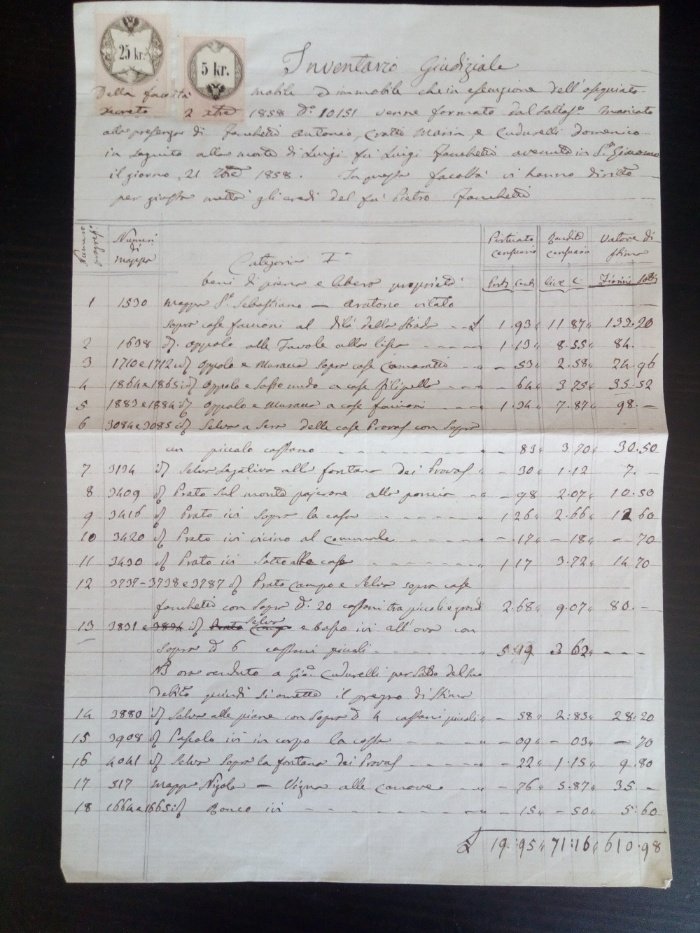 25 kr.
5 kr.
Inventario Giudiziale
Della facoltà mobile ed immobile che in esecuzione dell'ossequiato
decreto 2 1858 N. 10151 venne formato dal Sottos.
alla presenza di Fanchetti Antonio, Maria, e Codurelli Domenico
in seguito alla morte di Luigi fù Luigi Fanchetti avvenuta in S. Giacomo
il giorno, 21 1858. In questa facoltà vi hanno diritto
per giusta metà gli eredi del fù Pietro Fanchetti
Numero progres.
Numeri di Mappa
Categoria I.a
beni di piena e libera proprietà
Perticato censuario
Rendita censuaria
Valore di stima
Pert. Cent.
Lire C.
Fiorini Soldi
1 1530 Mappa S. Sebastiano - Aratorio vitato
sopra case al di là della Strada £ 1.93 11.87 133.20
2 1698 id. alle Tavole alla 1.13 8.55 84.-
3 1710 e 1712 id. e Muracca sopra case -.53 2.58 24.96
4 1864 e 1865 id. e Sasso nudo a case -.64 3.75 35.52
5 1883 e 1884 id. e Muracca a case 1.34 7.87 98.-
6 3084 e 3085 id. Selva a Sera delle case con sopra
un piccolo castano -.83 3.70 30.50
7 3194 id. Selva alla fontana dei -.30 1.12 7.-
8 3409 id. Prato sul monte -.98 2.07 10.50
9 3416 id. Prato ivi sopra la casa 1.26 2.66 12.60
10 3420 id. Prato ivi vicino al comunale -.17 -.18 -.70
11 3430 id. Prato ivi sotto alle case 1.17 3.72 14.70
12 3737-3738 e 3787 id. Prato Campo e Selva sopra case
Fanchetti con sopra N. 20 castani tra piccoli e grandi 2.68 9.07 80.-
13 3831 e id. Selva e basso ivi all'ova con
sopra N. 6 castani piccoli 5.49 3.62 -
NB ora venduto a Gio. Codurelli per saldo del suo
debito quindi si omette il pregno di stima
14 3880 id. Selva alle piane con sopra N. 4 castani piccoli -.58 2.83 28.20
15 3908 id. Pascolo ivi in corpo la -.09 -.03 -.70
16 4041 id. Selva sopra la fontana dei -.22 1.15 9.80
17 517 Mappa Nigola - Vigna alle -.76 5.87 35.-
18 1664 e 1665 id. Bosco ivi -.15 -.50 5.60
£ 19.95 71.16 610.98